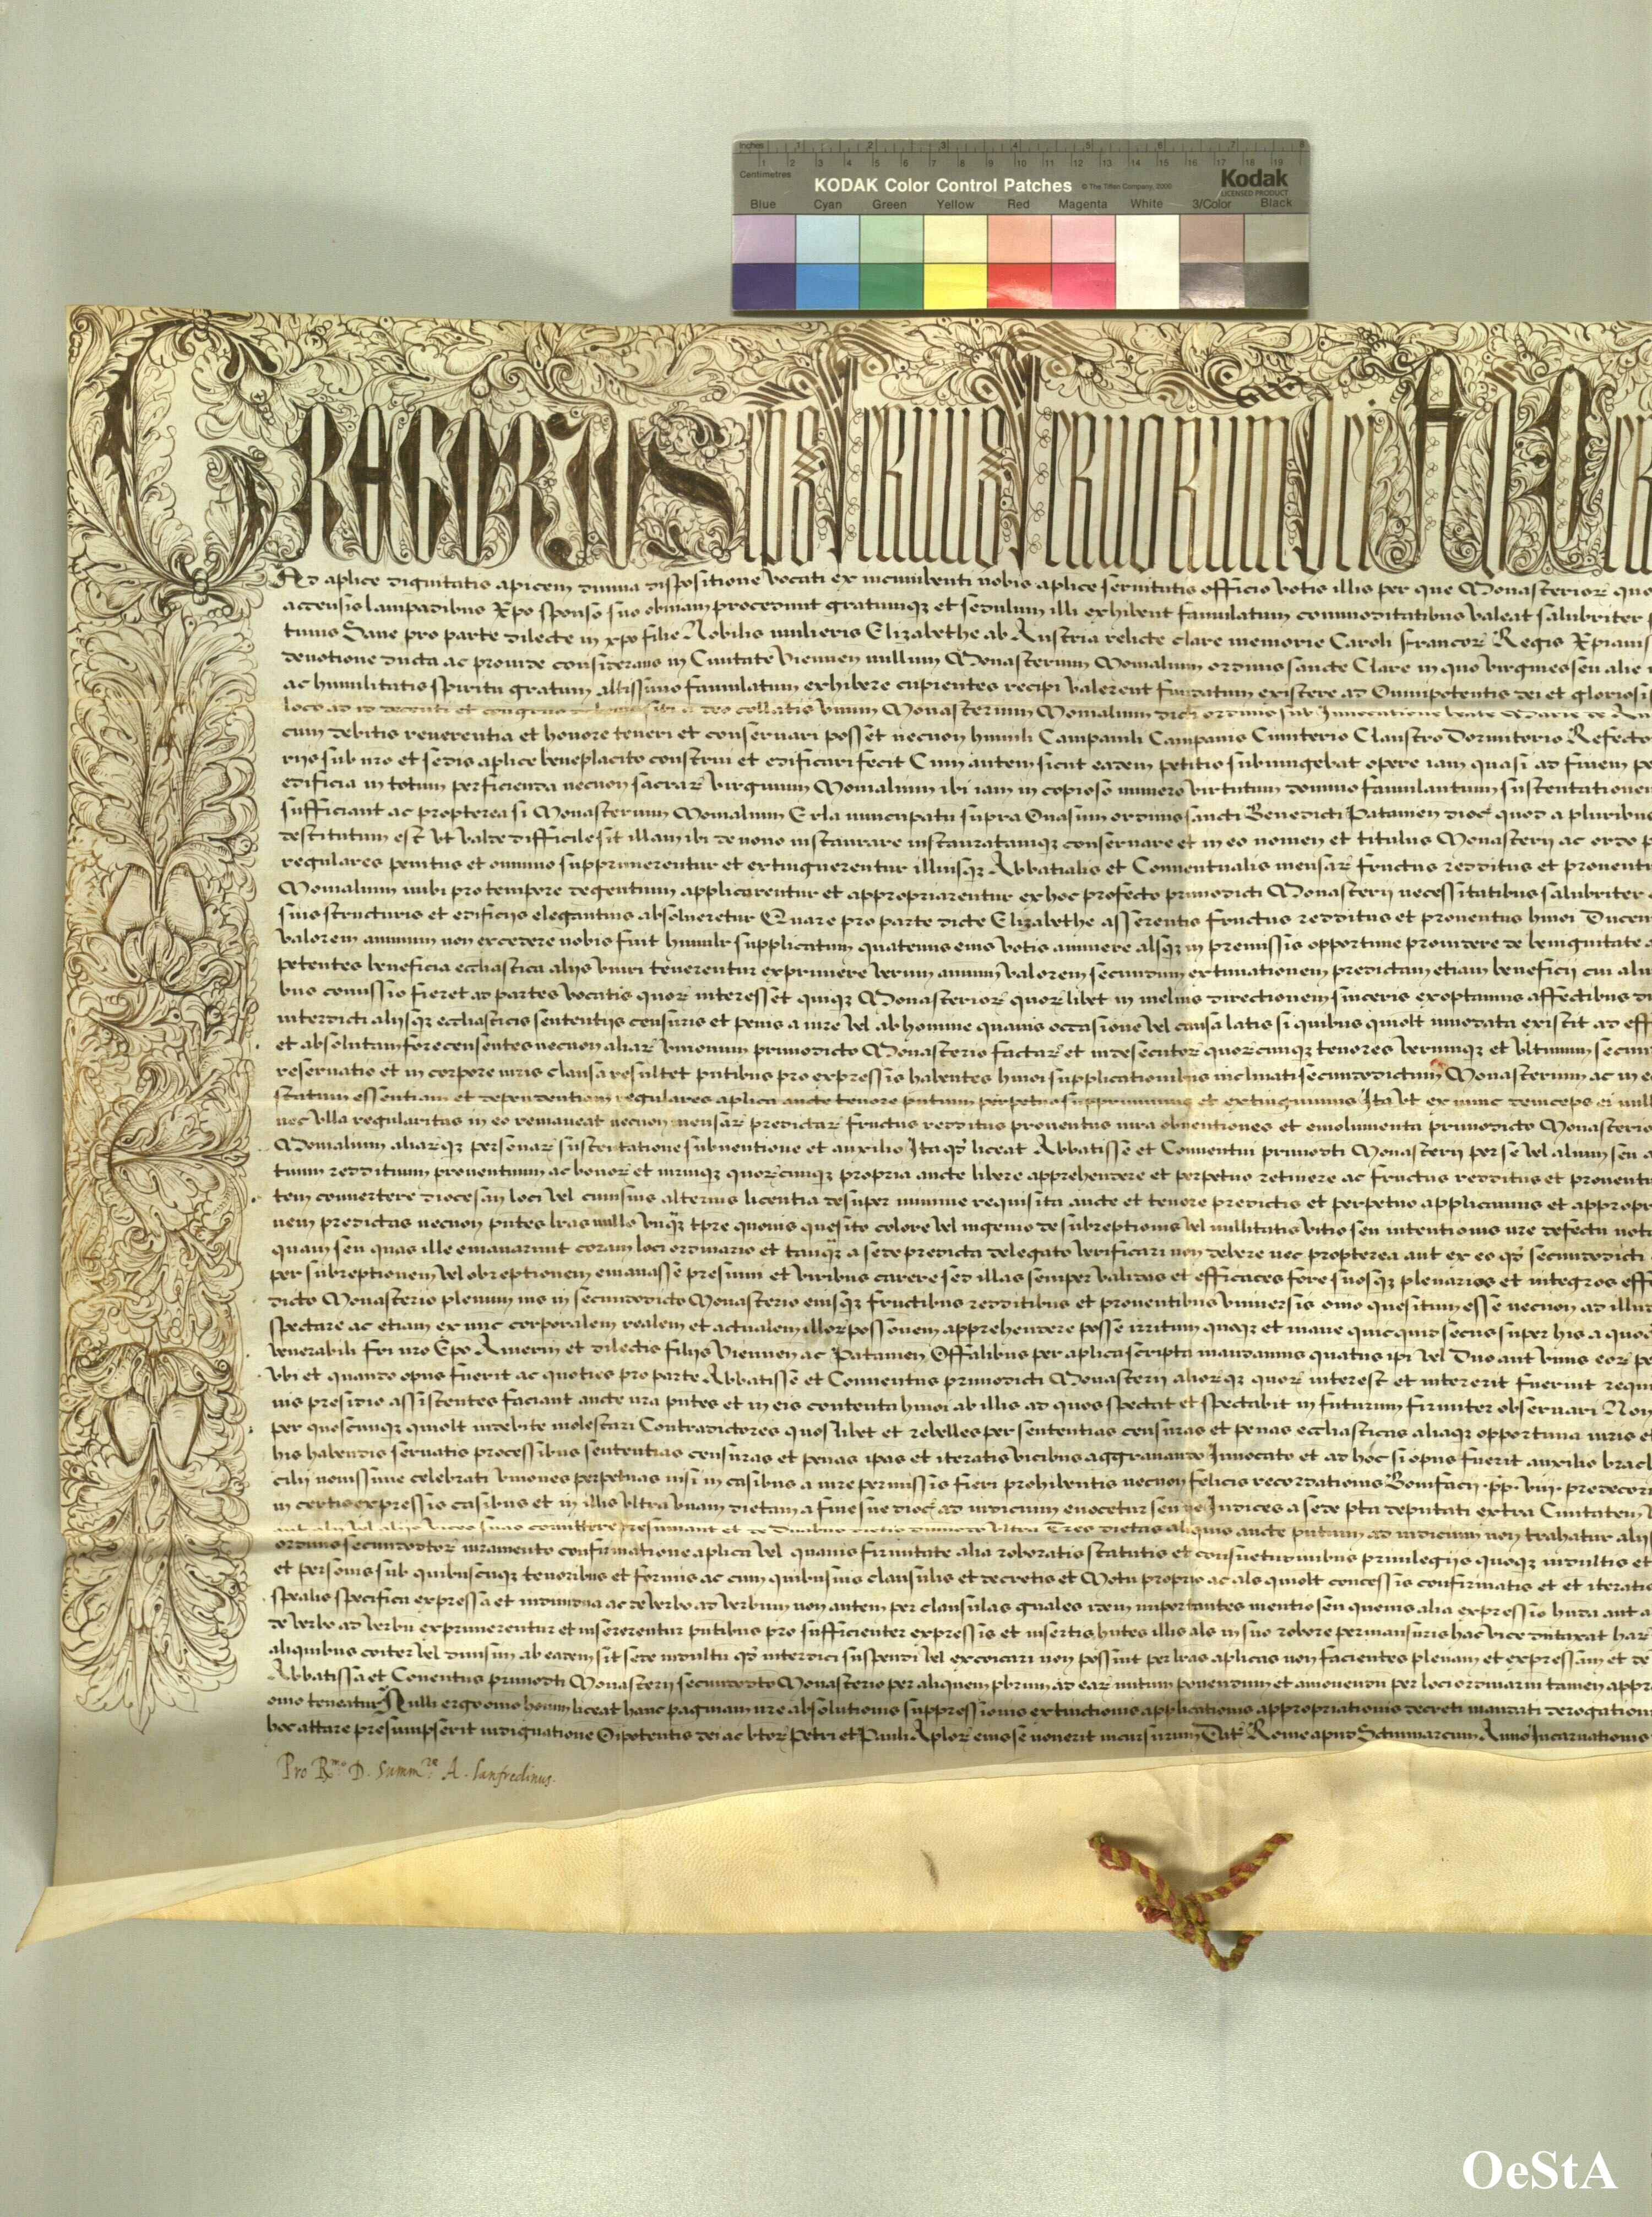 Inches 1 2 3 4 5 6 7 8
Centimetres 1 2 3 4 5 6 7 8 9 10 11 12 13 14 15 16 17 18 19
KODAK Color Control Patches © The Tiffen Company, 2000 Kodak
LICENSED PRODUCT
Blue Cyan Green Yellow Red Magenta White 3/Color Black
GREGORIUS eps servus servorum Dei Ad
Ad aplice dignitatis apicem divina dispositione vocati ex incumbenti nobis aplice servitutis officio votis illis per que Monasterior quo
accensis lampadibus Xpo sponso suo obviam procedunt gratumq et sedulum illi exhibent famulatum commoditatibus valeat salubriter
tunis Sane pro parte dilecte in xpo filie Nobilis mulieris Elizabethe ab Austria relicte clare memorie Caroli francor Regis Xpianis
devotione ducta ac provide considerans in Civitate Viennen nullum Monasterium Monialium ordinis sancte Clare in quo virgines seu alie
ac humilitatis spiritu gratum altissimo famulatum exhibere cupientes recipi valerent fundatum existere ad Omnipotentis dei et gloriosi
loco ad id a deo collatis unum Monasterium Monialium dicti ordinis sub Invocatione beate Marie de
cum debitis reverentia et honore teneri et conservari posset necnon humili Campanili Campanis Cimiterio Claustro Dormitorio Refecto
rijs sub nro et sedis aplice beneplacito construi et edificari fecit Cum autem sicut eadem petitio subiungebat opere iam quasi ad finem
edificia in totum perficienda necnon sacrar virginum Monialium ibi iam in copioso numero virtutum domino famulantum sustentationem
sufficiant ac propterea si Monasterium Monialium Erla nuncupatu supra Onasum ordinis sancti Benedicti Patavien dioc quod a pluribus
destitutum est ut valde difficile sit illam ibi de novo instaurare instauratamq conservare et in eo nomen et titulus Monasterij ac ordo
regulares penitus et omnino supprimerentur et extinguerentur illiusq Abbatialis et Conventualis mensar fructus redditus et proventu
Monialium inibi pro tempore degentium applicarentur et appropriarentur ex hoc profecto primodicti Monasterij necessitatibus salubriter
suis structuris et edificijs elegantius absolveretur Quare pro parte dicte Elizabethe asserentis fructus redditus et proventus hmoi Ducen
valorem annuum non excedere nobis fuit humilr supplicatum quatenus eius votis annuere alsq in premissis opportune providere de benignitate
petentes beneficia ecclastica alijs uniri tenerentur exprimere verum annuum valorem secundum extimationem predictam etiam beneficij cui aliu
bus comissio fieret ad partes vocatis quor interesset quiq Monasterior quorlibet in melius directionem sinceris exoptamus affectibus
interdicti alijsq ecclasticis sententijs censuris et penis a iure vel ab homine quavis occasione vel causa latis si quibus quolt inodata existit ad eff
et absolutam fore censentes necnon aliar unionum primodicto Monasterio factar et indesecutor quorcunq tenores verumq et ultimum
reservatio et in corpore iuris clausa resultet pntibus pro expressis habentes hmoi supplicationibus inclinati secundodictum Monasterium ac in
statum essentiam et dependentiam regulares aplica aucte tenore pntium perpetuo supprimimus et extinguimus Ita ut ex nunc deinceps ei null
nec ulla regularitas in eo remaneat necnon mensar predictar fructus redditus proventus iura obventiones et emolumenta primodicto Monasterio
Monialium aliarq personar sustentatione subventione et auxilio Ita qd liceat Abbatisse et Conventui primodti Monasterij per se vel alium seu
tuum reddituum proventuum ac bonor et iuriuq quorcunq propria aucte libere apprehendere et perpetuo retinere ac fructus redditus et proventu
tem convertere diocesan loci vel cuiusvis alterius licentia desuper minime requisita aucte et tenore predictis et perpetuo applicamus et appropr
nem predictas necnon pntes lras nullo unq tpre quovis quesito colore vel ingenio de subreptionis vel nullitatis vitio seu intentionis nre defectu
quam seu quas ille emanarunt coram loci ordinario et tanq a sede predicta delegato verificari non debere nec propterea aut ex eo qd secundodicti
per subreptionem vel obreptionem emanasse presumi et viribus carere sed illas semper validas et efficaces fore suosq plenarios et integros eff
dicto Monasterio plenum ius in secundodicto Monasterio eiusq fructibus redditibus et proventibus universis omo quesitum esse necnon ad illud
spectare ac etiam ex nunc corporalem realem et actualem illor possionem apprehendere posse irritum quoq et inane quicquid secus super his a quoq
venerabili fri nro Epo Amerin et dilectis filijs Viennen ac Patavien Offalibus per aplica scripta mandamus quatus ipi vel Duo aut unus eor
ubi et quando opus fuerit ac quoties pro parte Abbatisse et Conventus primodicti Monasterij aliorq quor interest et intererit fuerint requi
nis presidio assistentes faciant aucte nra pntes et in eis contenta hmoi ab illis ad quos spectat et spectabit in futurum firmiter observari Non
per quoscunq quolt indebite molestari Contradictores quoslibet et rebelles per sententias censuras et penas ecclasticas aliaq opportuna iuris
his habendis servatis processibus sententias censuras et penas ipas et iteratis vicibus aggravando Invocato et ad hoc si opus fuerit auxilio brach
cilij novissime celebrati uniones perpetuas nisi in casibus a iure permissis fieri prohibentis necnon felicis recordationis Bonifacij pp viij predecor
in certis expressis casibus et in illis ultra unam dietam a fine sue dioc ad iudicium evocetur seu ne Iudices a sede pta deputati extra Civitatem
aut alij vel alijs vices suas comittere presumant et de Duabus dietis dumodo ultra Tres dietas aliquis aucte pntium ad iudicium non trahatur
ordinis secundodtor iuramento confirmatione aplica vel quavis firmitate alia roboratis statutis et consuetudinibus privilegijs quoq indultis et
et personis sub quibuscunq tenoribus et formis ac cum quibusvis clausulis et decretis et Motu proprio ac als quolt concessis confirmatis et et iteratis
spealis specifica expressa et individua ac de verbo ad verbum non autem per clausulas gnales idem importantes mentio seu quevis alia expressio hnda aut
de verbo ad verbu exprimerentur et insererentur pntibus pro sufficienter expressis et insertis hntes illis als in suo robore permansuris hac vice dutaxat
aliquibus coiter vel divisim ab eadem sit sede indultu qd interdici suspendi vel excoicari non possint per lras aplicas non facientes plenam et expressam et
Abbatissa et Conventus primodti Monasterij secundodto Monasterio per aliquem pbrum ad ear nutum ponendum et amovendu per loci ordinariu tamen
omo teneatur Nulli ergo omo hominum liceat hanc paginam nre absolutionis suppressionis extinctionis applicationis appropriationis decreti mandati derogation
hoc attare presumpserit indignatione Oipotentis dei ac btor Petri et Pauli Aplor eius se noverit incursurum Dat Rome apud Sctummarcum Anno Incarnationis
Pro Rmo D. Summre A. Lanfredinus.
OeStA